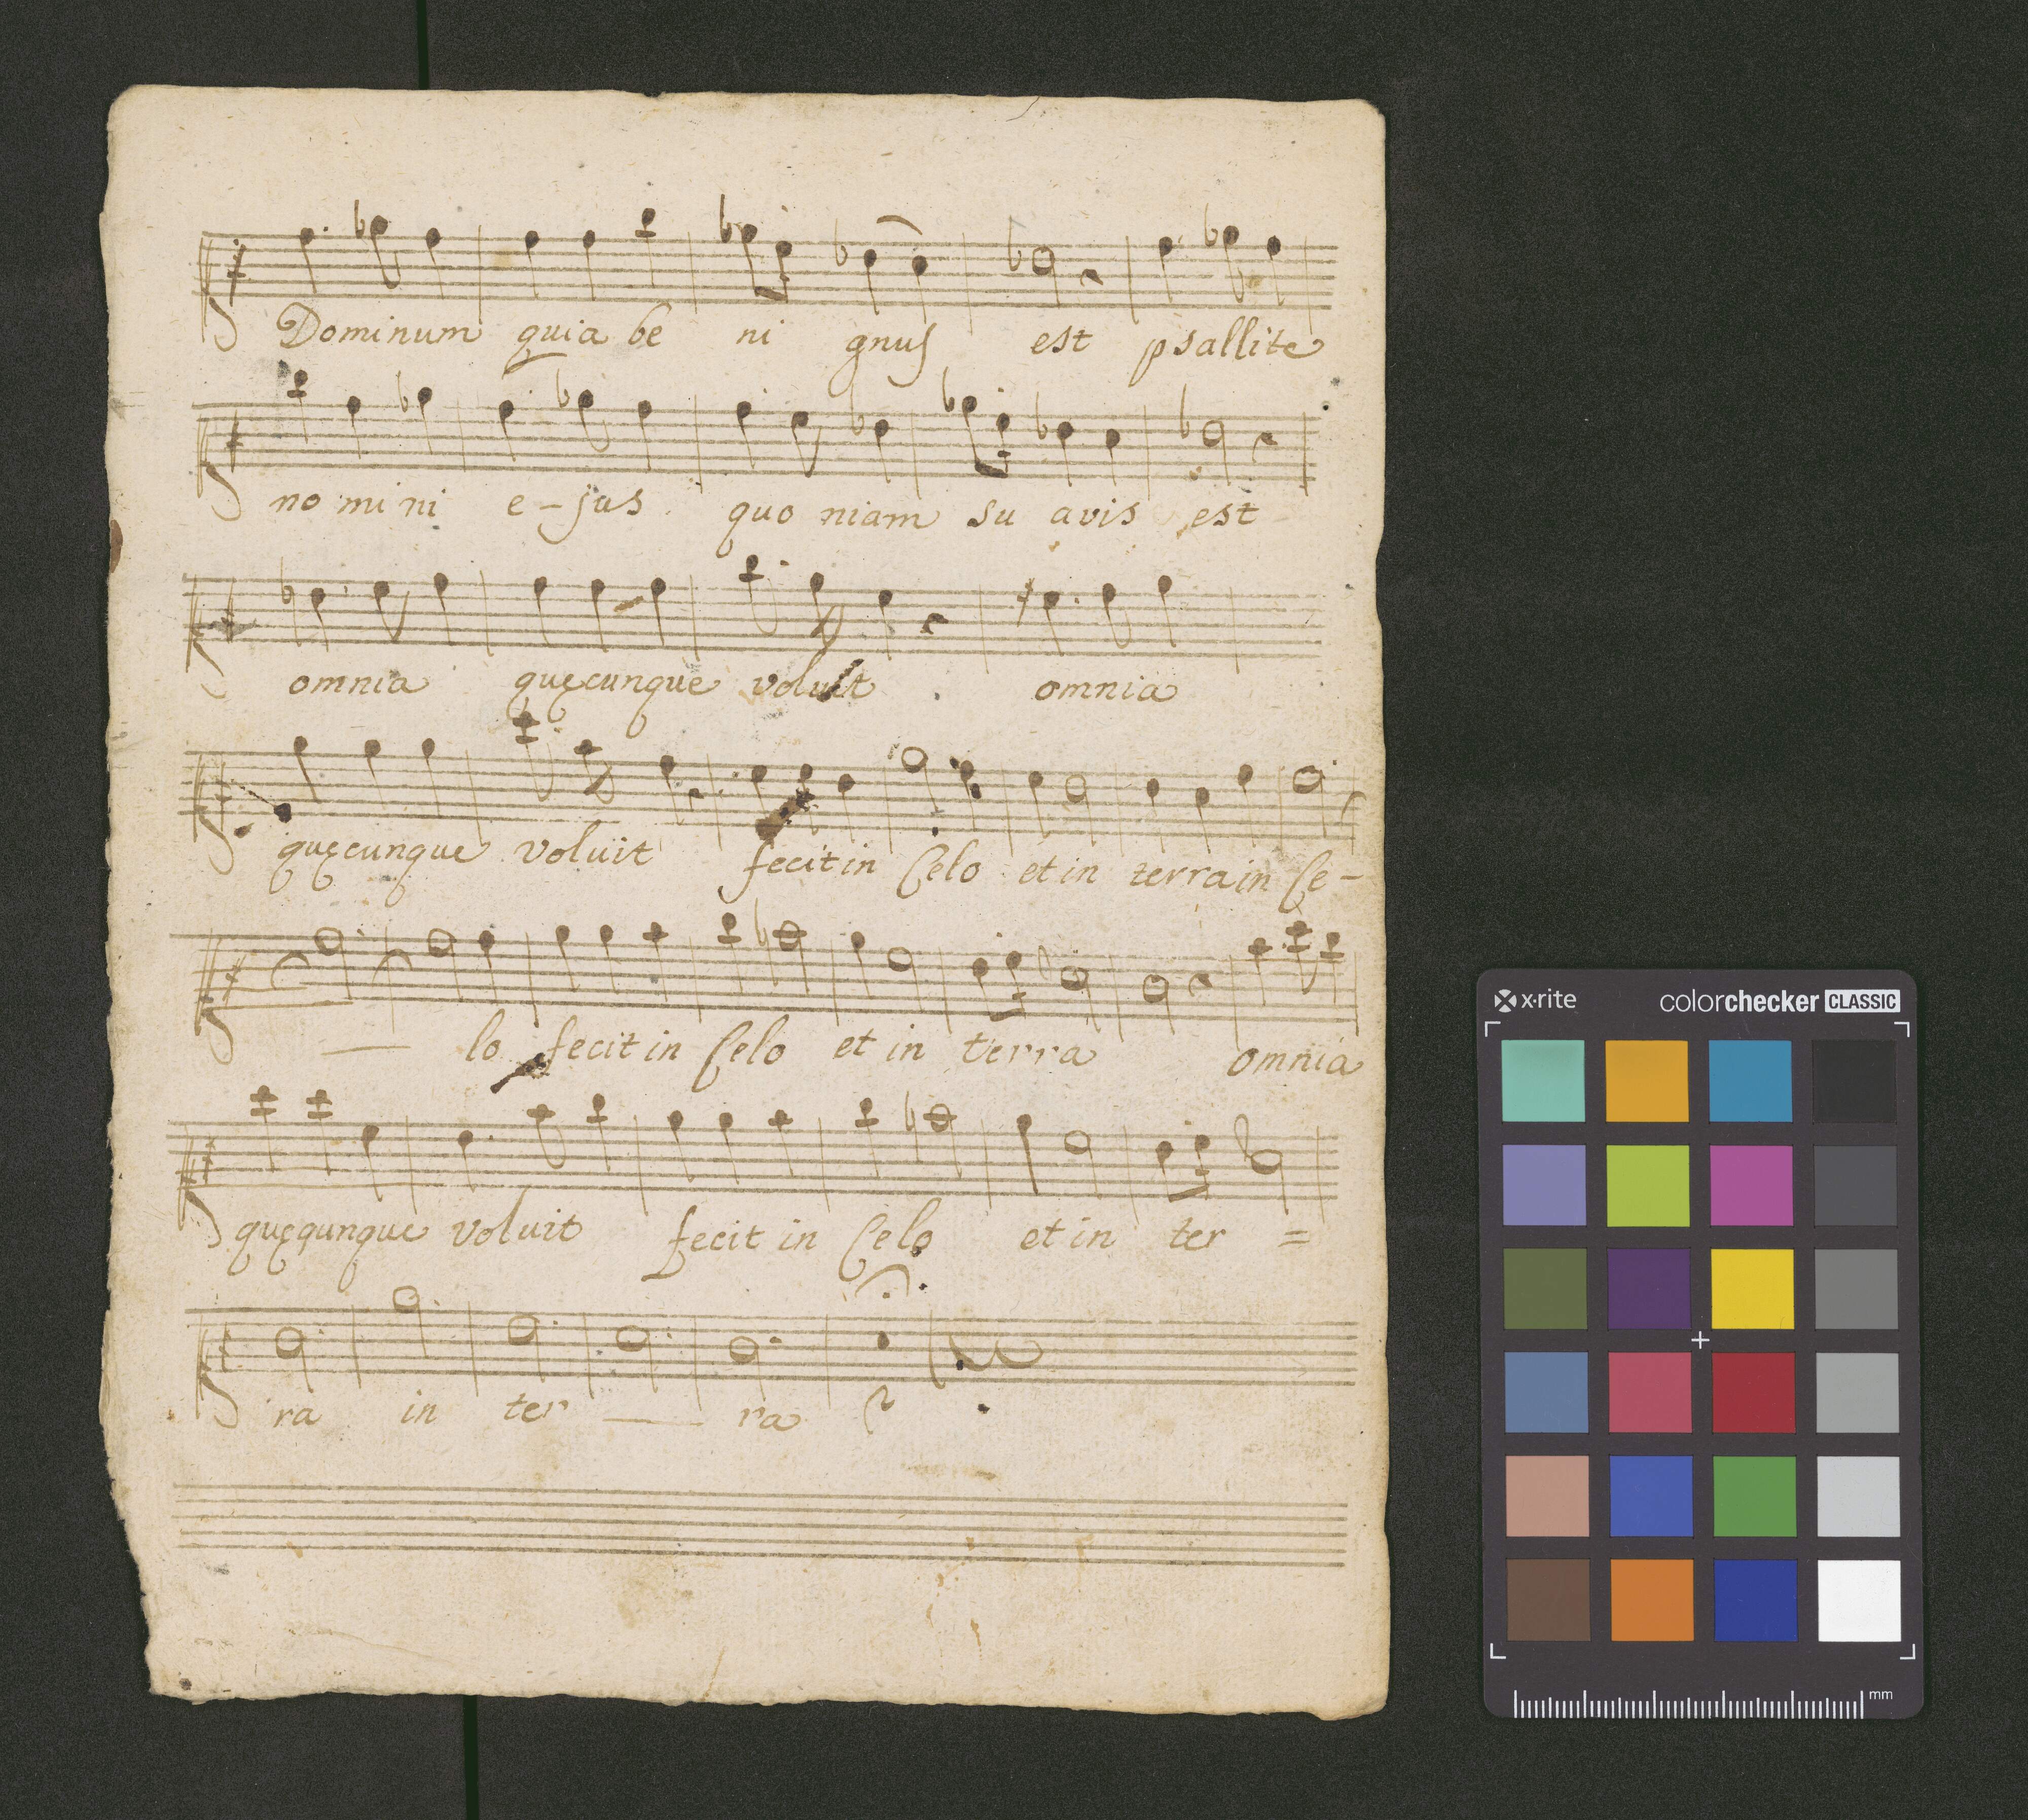 Dominum quia be ni gnus est psallite
no mi ni e - jus quo niam su avis est
omnia quęcunque voluit omnia
quęcunque voluit fecit in Celo et in terra in Ce -
— lo fecit in Celo et in terra omnia
quęqunque voluit fecit in Celo et in ter =
ra in ter — ra
x·rite colorchecker CLASSIC
mm